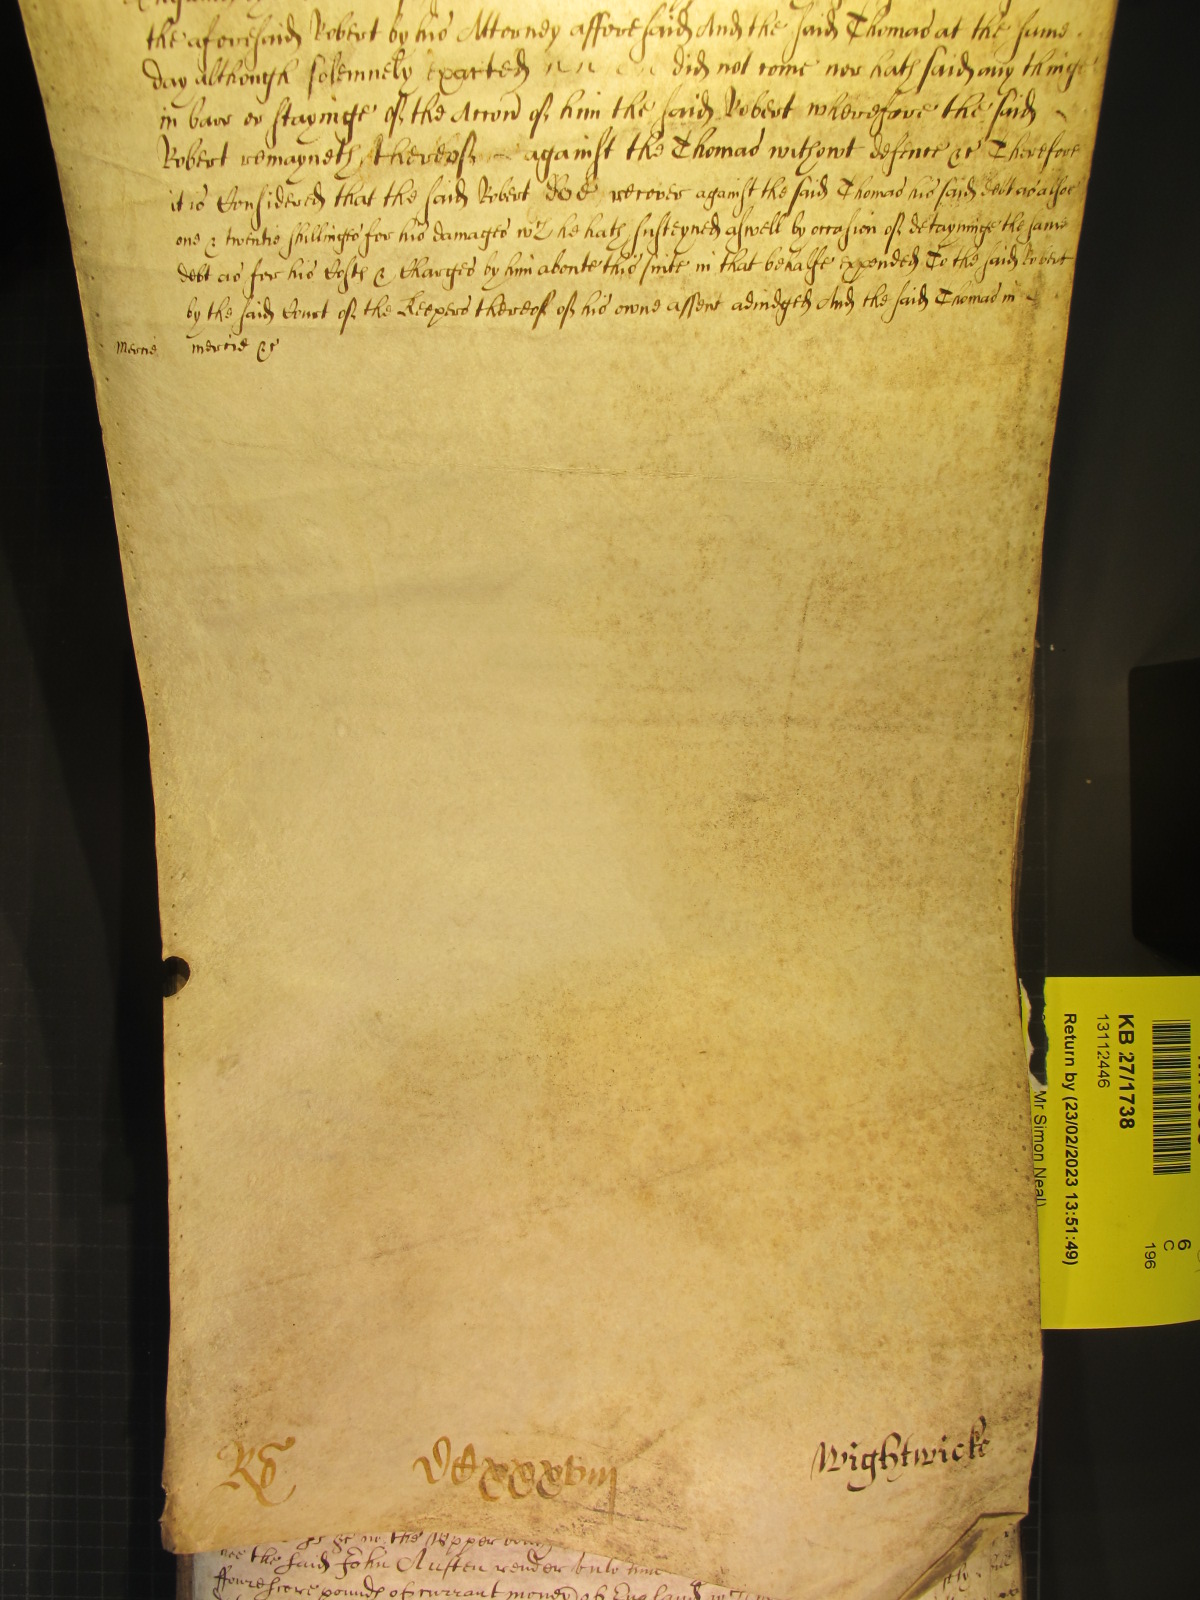 the aforesaid Robert by his Attorney afforesaid And the said Thomas at the same
day although solemnely exacted did not come nor hath said any thinge
in barr or stayinge of the Accion of him the said Robert wherefore the said
Robert remayneth thereof against the Thomas without defence &c Therefore
it is Considered that the said Robert doe recover against the said Thomas his said debt as alsoe
one & twentie shillinges for his damages wch he hath susteyned aswell by occasion of detayninge the same
debt as for his Costs & Charges by him aboute this suite in that behalfe expended To the said Robert
by the said Court of the Keepers thereof of his owne assent adiudged And the said Thomas in
Mercie mercie &c
Wightwicke
the Upper
the said John Austen render unto him
ffourescore pounds of currant money of England
KB 27/1738
13112446
Return by (23/02/2023 13:51:49)
Mr Simon Neal)
6
C
196